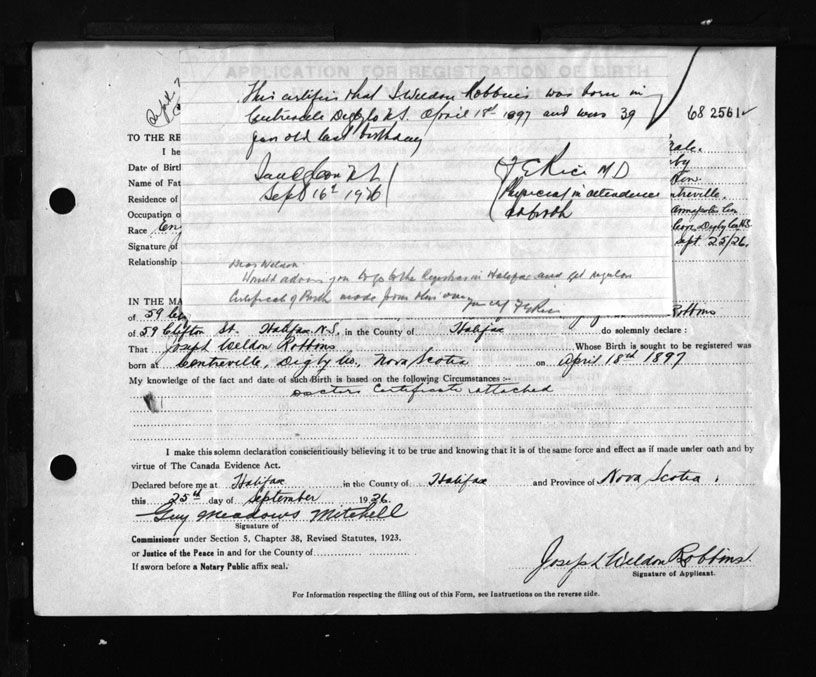 APPLICATION FOR REGISTRATION OF BIRTH
This certifies that J. Weldon Robbins was born in
Centreville Digby Co N.S. April 18th 1897 and was 39
year old last birthday
68 2561
TO THE RE
I he
Date of Birth
Name of Fat
Residence of
Occupation o
Race Eng
Signature of
Relationship
Sept 16th 1936
F E Rice M D
Physician in attendance
at birth
ntreville
Annapolis Co
Digby Co N.S.
Sept. 25/26.
Dear Weldon
Would advise you to go to the Registrar in Halifax and get regular
Certificate of Birth made from
F E Rice
IN THE MA
Robbins
of 59 Cli
of 59 Clifton St. Halifax N.S. in the County of Halifax do solemnly declare :
That Joseph Weldon Robbins Whose Birth is sought to be registered was
born at Centreville, Digby Co., Nova Scotia on April 18th 1897
My knowledge of the fact and date of such Birth is based on the following Circumstances :-
Doctors Certificate attached
I make this solemn declaration conscientiously believing it to be true and knowing that it is of the same force and effect as if made under oath and by
virtue of The Canada Evidence Act.
Declared before me at Halifax in the County of Halifax and Province of Nova Scotia.
this 25th day of September 1926.
Guy Meadows Mitchell
Signature of
Commissioner under Section 5, Chapter 38, Revised Statutes, 1923.
or Justice of the Peace in and for the County of
If sworn before a Notary Public affix seal.
Joseph Weldon Robbins
Signature of Applicant.
For Information respecting the filling out of this Form, see Instructions on the reverse side.